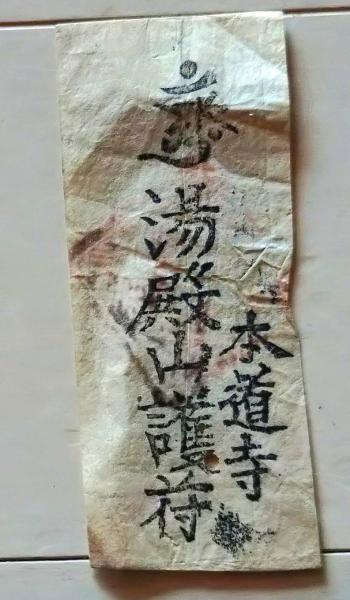 本道寺
湯殿山護符